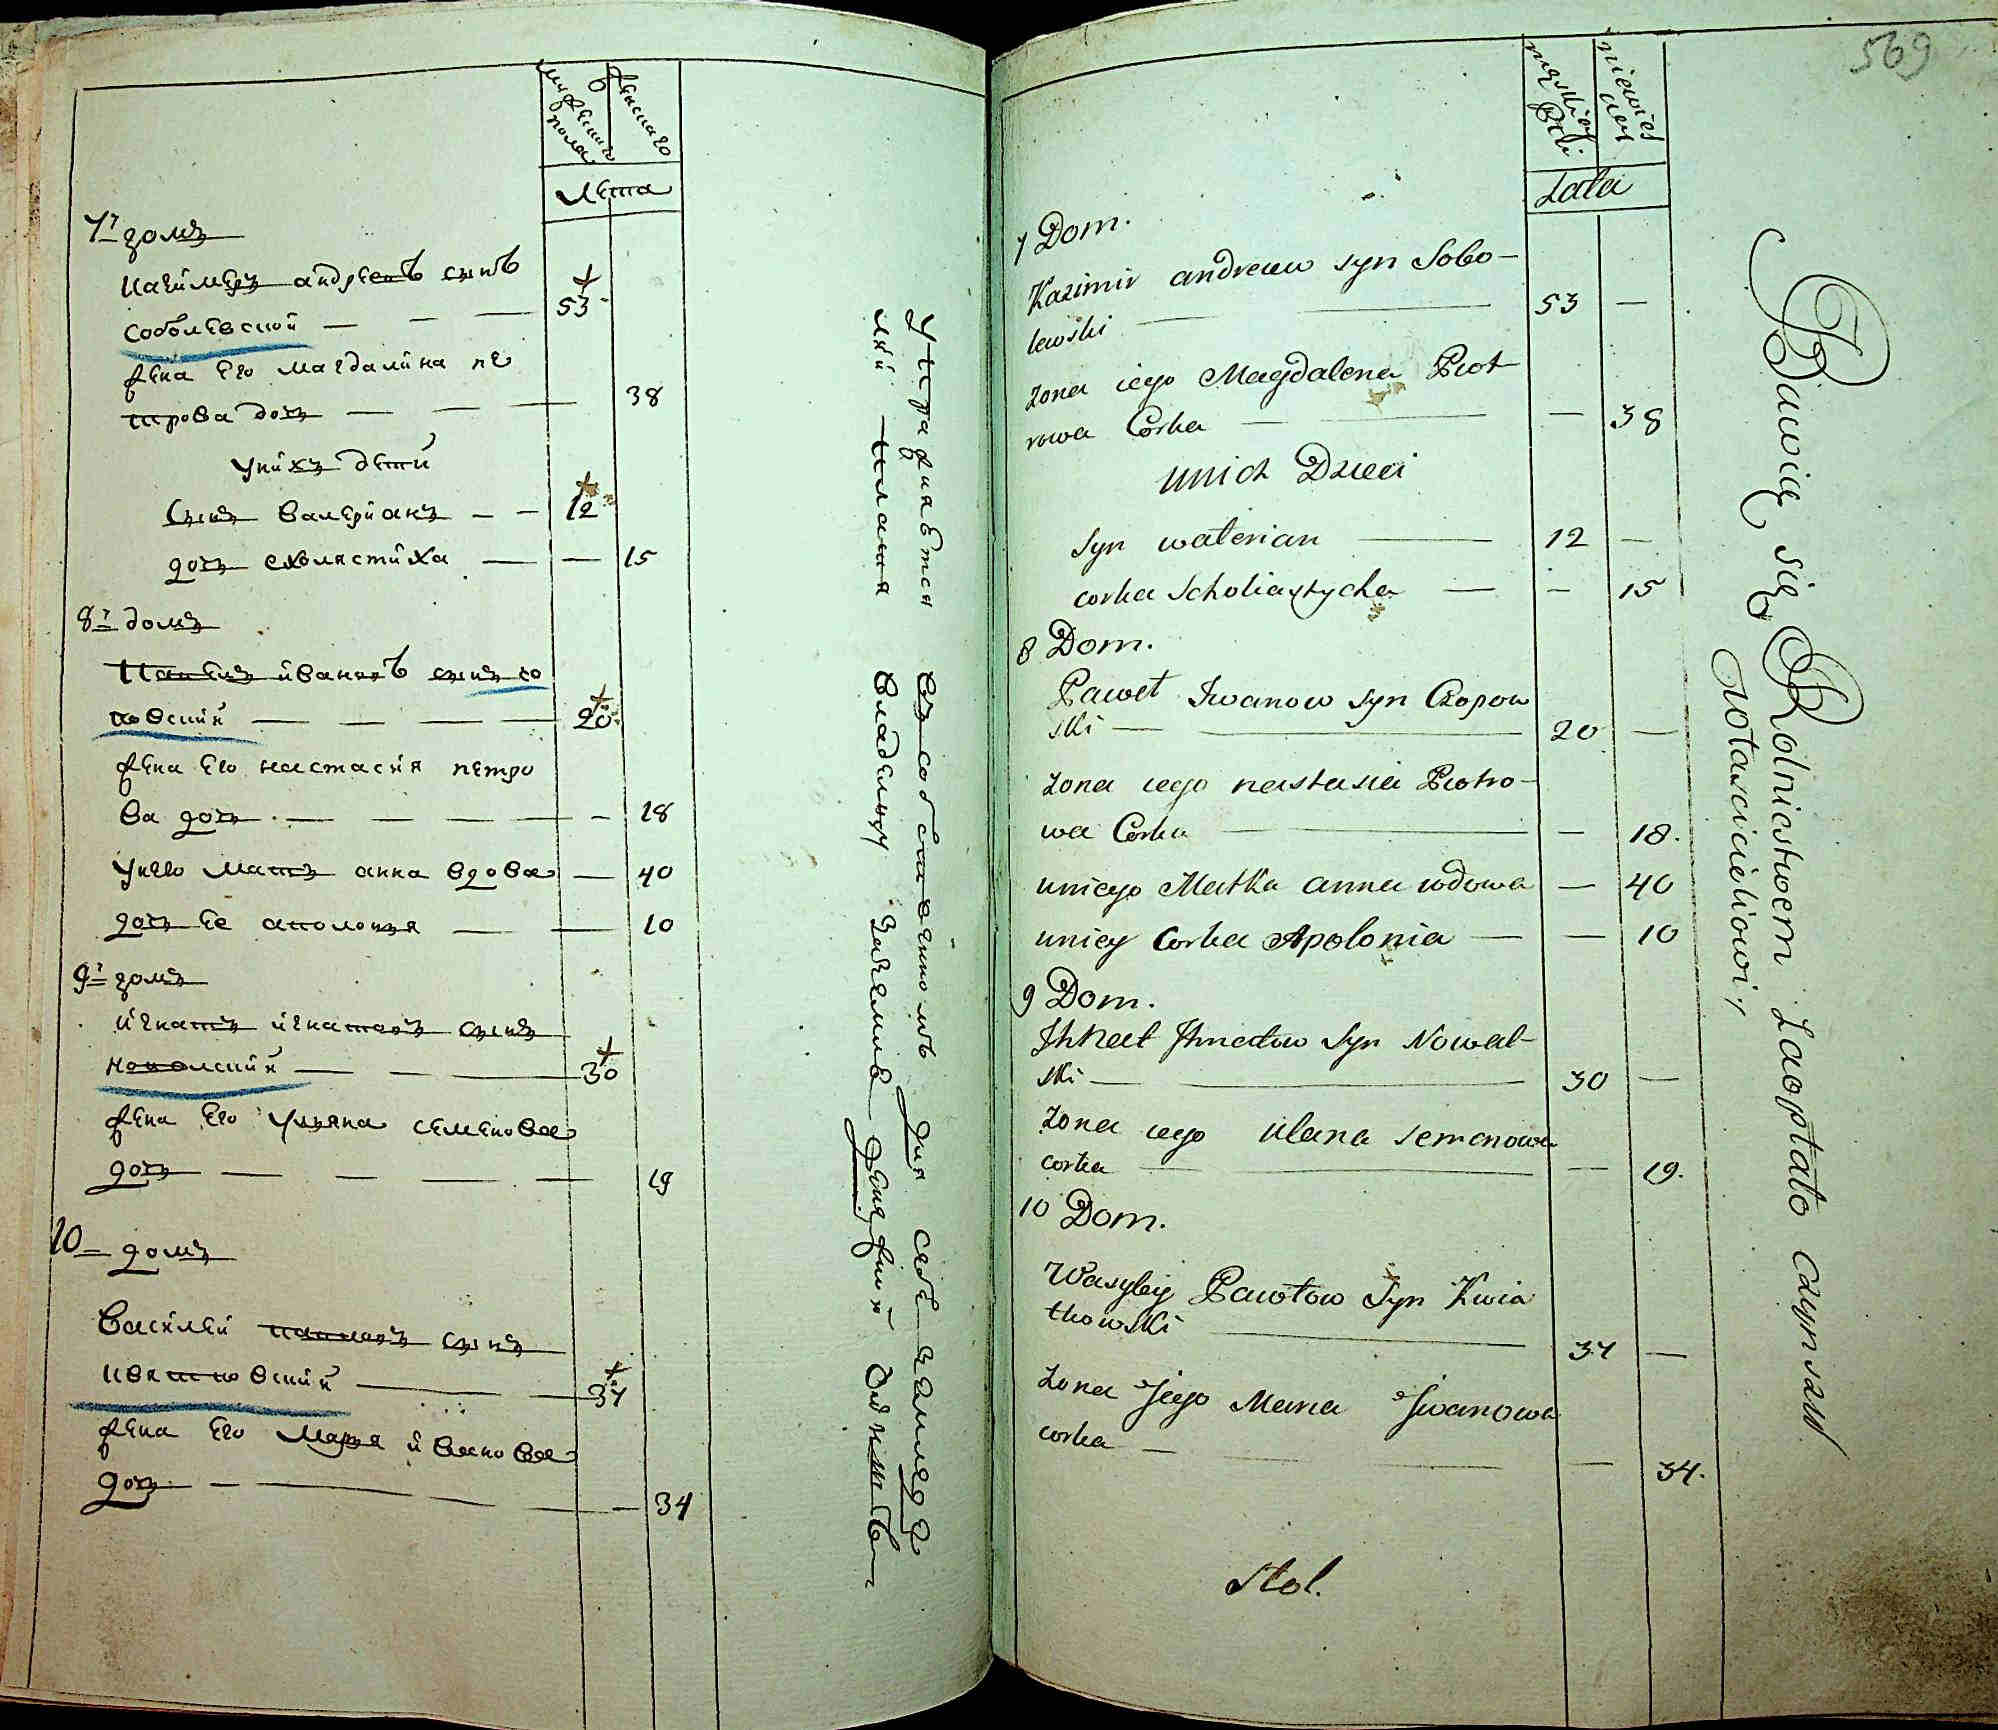 мужеского пола
женскаго
Лета
7й домъ
Казимеръ андреевъ сынъ
соболевской — — — 53
жена Его магдалина пе
трова дочъ — — — 38
унихъ дети
Сынъ валериянъ — — 12
дочъ схолястиха — — 15
8й домъ
Павелъ ивановъ сынъ со
повский — — — — 20
жена Его настасия петро
ва дочъ — — — — — 18
унего мать анна вдова — 40
дочъ Ее аполония — — 10
9й домъ
игнатъ игнатовъ сынъ
новалский — — — 30
жена Его Ульяна семенова
дочъ — — — — — 19
10 домъ
Василей павловъ сынъ
квятковский — — 34
жена Его Марья иванова
дочъ — — — — 34
Упражняются въ собственномъ для себя земледе
лии владельцу
569
męskiej Płci
niewies
Lata
7 Dom.
Kazimir andreuw syn Sobo-
lewski — — 53 —
zona iego Magdalena Piot
rowa Corka — — — 38
unich Dzieci
syn walerian — 12 —
corka Scholiastycha — — 15
8 Dom.
Paweł Iwanow syn Czopow
ski — — 20 —
zona iego nastasia Piotro-
wa Corka — — 18.
uniego Matka anna wdowa — 40
uniey Corka Apolonia — — 10
9 Dom.
Ihnat Ihnatow Syn Nowal-
ski — — 30 —
zona iego Ulana semenowa
corka — — — 19.
10 Dom.
Wasyley Pawłow Syn Kwia
tkowski — 34 —
zona Jego Maria Jwanowa
corka — — — — 34.
Bawią się Rolniastwem Zaopłato czynszu
włascicieliowi